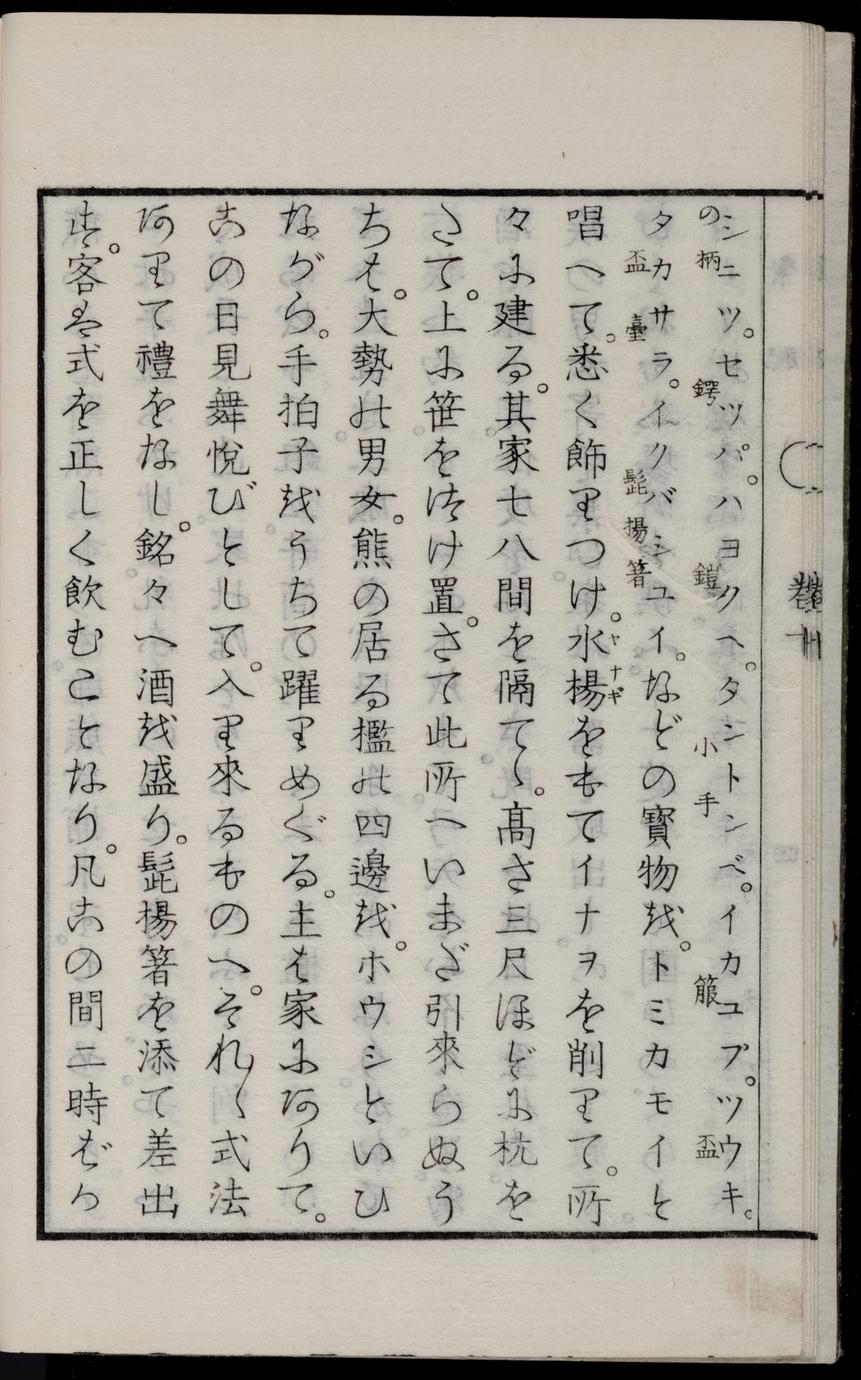 シニツ。セツパ。ハヨクヘ。タントンベ。イカユプ。ツウキ。
の柄 鍔 鎧 小手 箙 盃
タカサラ。イクバシユイ。などの寳物を。トミカモイと
盃臺 髭揚箸
唱へて。悉く飾りつけ。水揚をもてイナヲを削りて。所
ヤナギ
々に建る。其家七八間を隔てゝ。髙さ三尺ほどに杭を
さて。上に笹をつけ置。さて此所へいまだ引來らぬう
ちは。大勢の男女。熊の居る檻の四邊を。ホウシといひ
ながら。手拍子をうちて躍りめぐる。主は家にありて。
この日見舞悅びとして。入り來るものへ。それ〳〵式法
ありて禮をなし。銘々へ酒を盛り。髭揚箸を添て差出
す。客は式を正しく飲むことなり。凡この間二時ばか